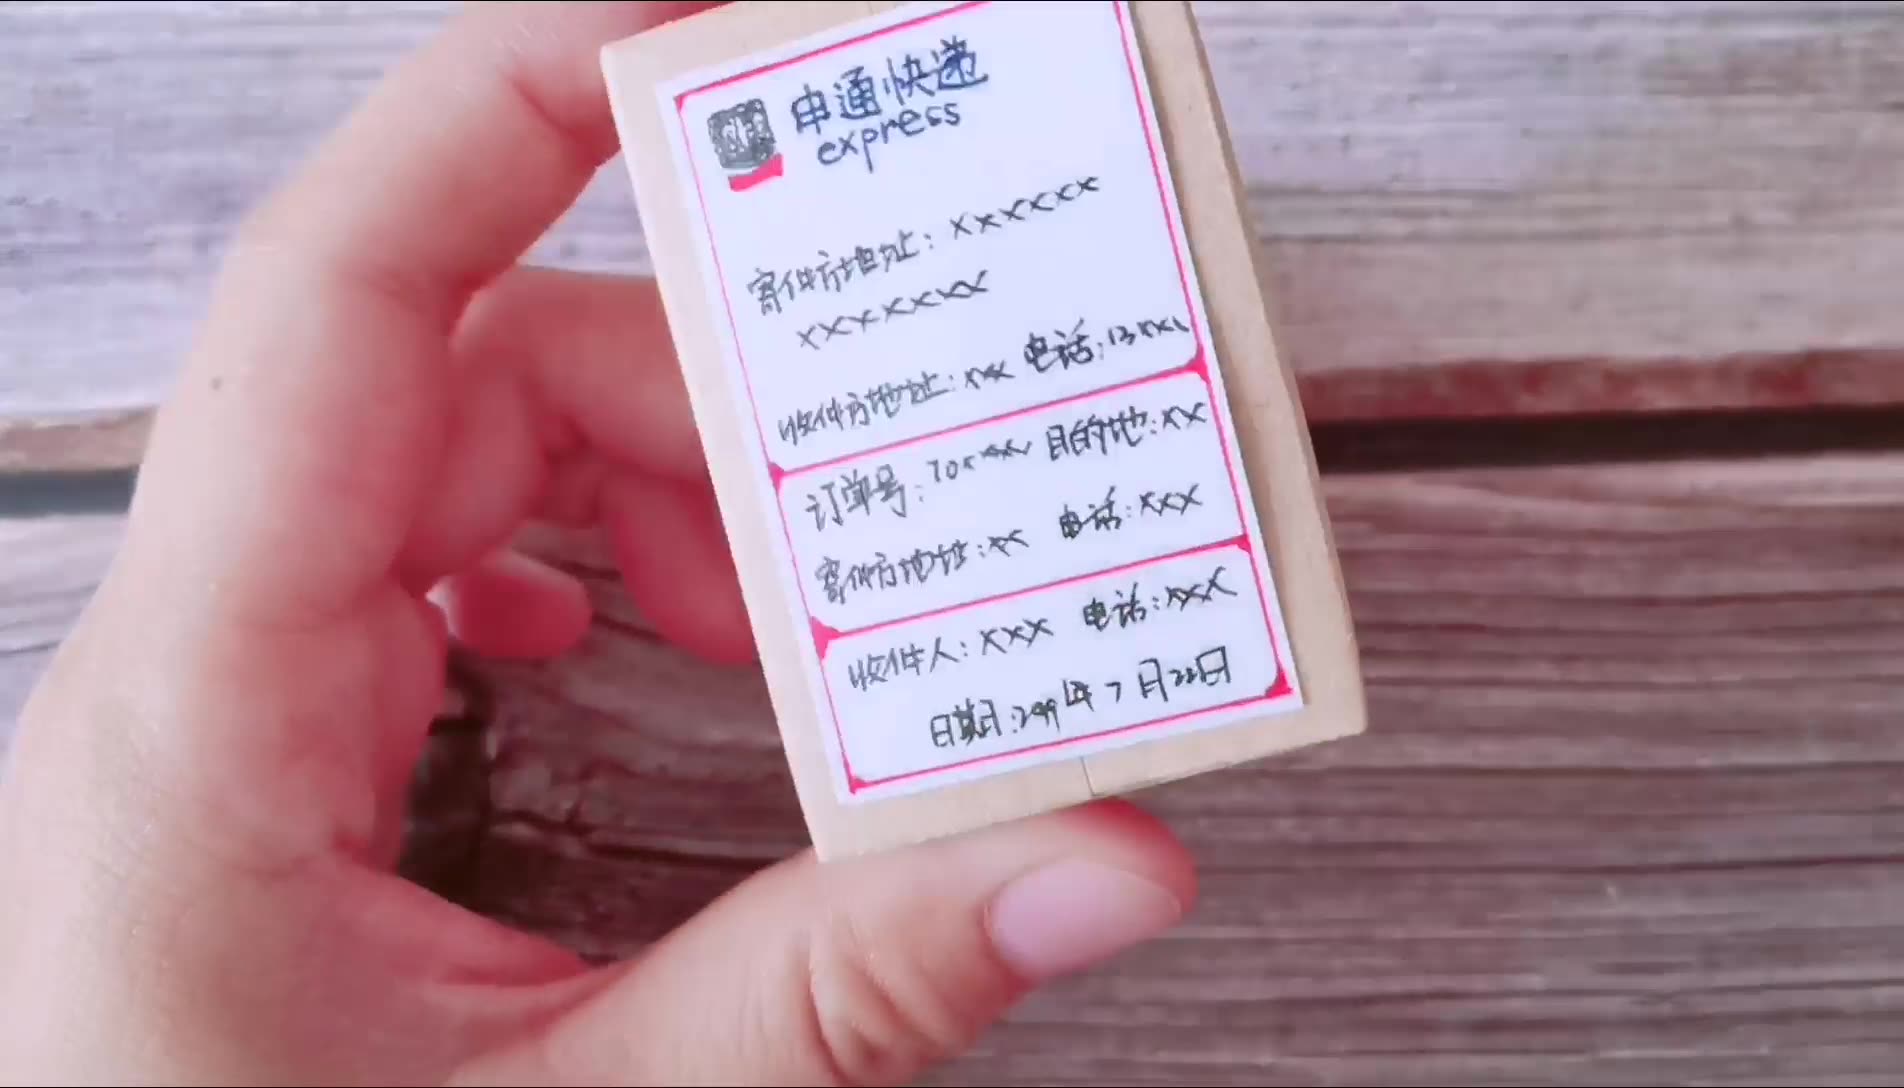 申通快递
express
寄件方地址：xxxxxx
xxxxxxx
收件方地址：xxx 电话：13xxx
订单号：10xxxxx 目的地：xx
寄件方地址：xx 电话：xxx
收件人：xxx 电话：xxx
日期：年7月22日